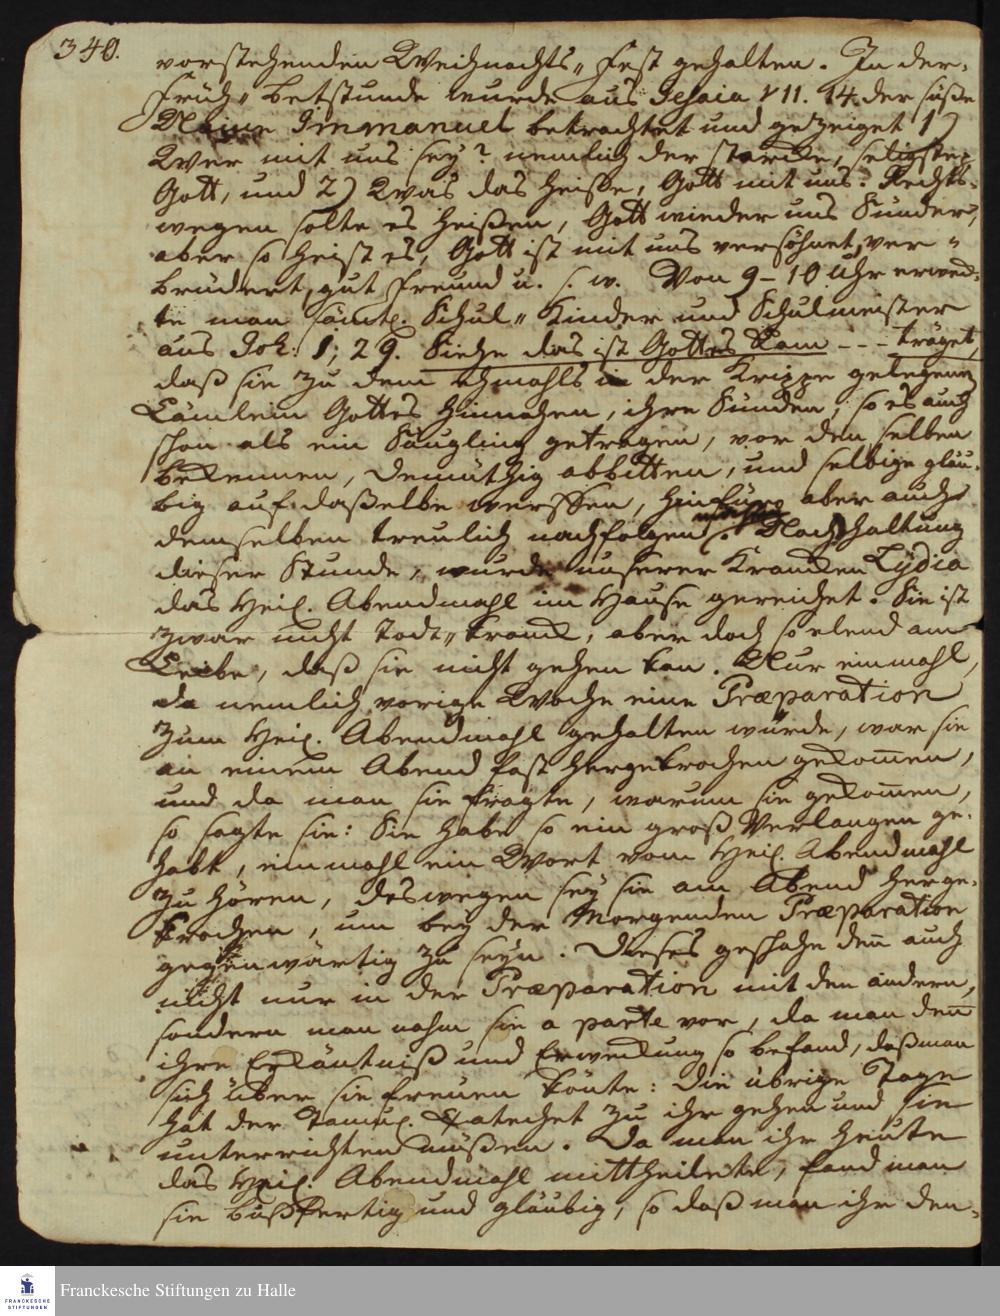 340.
vorstehenden Weihnachts„ Fest gehalten. In der
Früh„ betstunde wurde aus Jesaia VII. 14. der süße
Name Immanuel betrachtet und gezeiget 1)
Wer mit uns sey? nemlich der starcke, seligste
Gott, und 2) Was das heiße, Gott mit uns. Rechts-
wegen solte es heißen, Gott wieder uns Sünder,
aber so heist es, Gott ist mit uns versöhnet, ver=
brüdert, gut freund u. s. w. Von 9–10 Uhr erweck-
te man sämtl. Schul„ Kinder und Schulmeister
aus Joh: 1; 29. Siehe das ist Gottes Lam - - - träget,
daß sie zu dem ehmahls in der Krippe gelegenen
Lämlein Gottes hinnahen, ihre Sünden, so es auch
schon als ein Säugling getragen, vor den selben
bekennen, demüthig abbitten, und selbige gläu-
big auf daßelbe werffen, hinführo aber auch
demselben treulich nachfolgen. Nach haltung
dieser Stunde, wurde unserer Krancken Lydia
das Heil. Abendmahl im Hause gereichet. Sie ist
zwar nicht todt„ kranck, aber doch so elend am
Leibe, daß sie nicht gehen kan. Nur einmahl,
da nemlich vorige Woche eine Præparation
zum Heil. Abendmahl gehalten wurde, war sie
an einem Abend fast hergekrochen gekom̅en,
und da man sie fragte, warum sie gekom̅en,
so sagte sie: Sie habe so ein groß Verlangen ge-
habt, einmahl ein Wort vom Heil. Abendmahl
zu hören, deswegen sey sie am Abend herge-
krochen, um bey der Morgenden Præparation
gegenwärtig zu seyn. Dieses geschahe den̅ auch
nicht nur in der Præparation mit den andern,
sondern man nahm sie a parte vor, da man den̅
ihre Erkäntniß und Erweckung so befand, daß man
sich über sie freuen könte: Die übrige Tage
hat der Tamul. Catechet zu ihr gehen und sie
unterrichten müßen. Da man ihr heute
das Heil. Abendmahl mittheilete, fand man
sie bußfertig und gläubig, so daß man ihr den-
Franckesche Stiftungen zu Halle
FRANCKESCHE
STIFTUNGEN